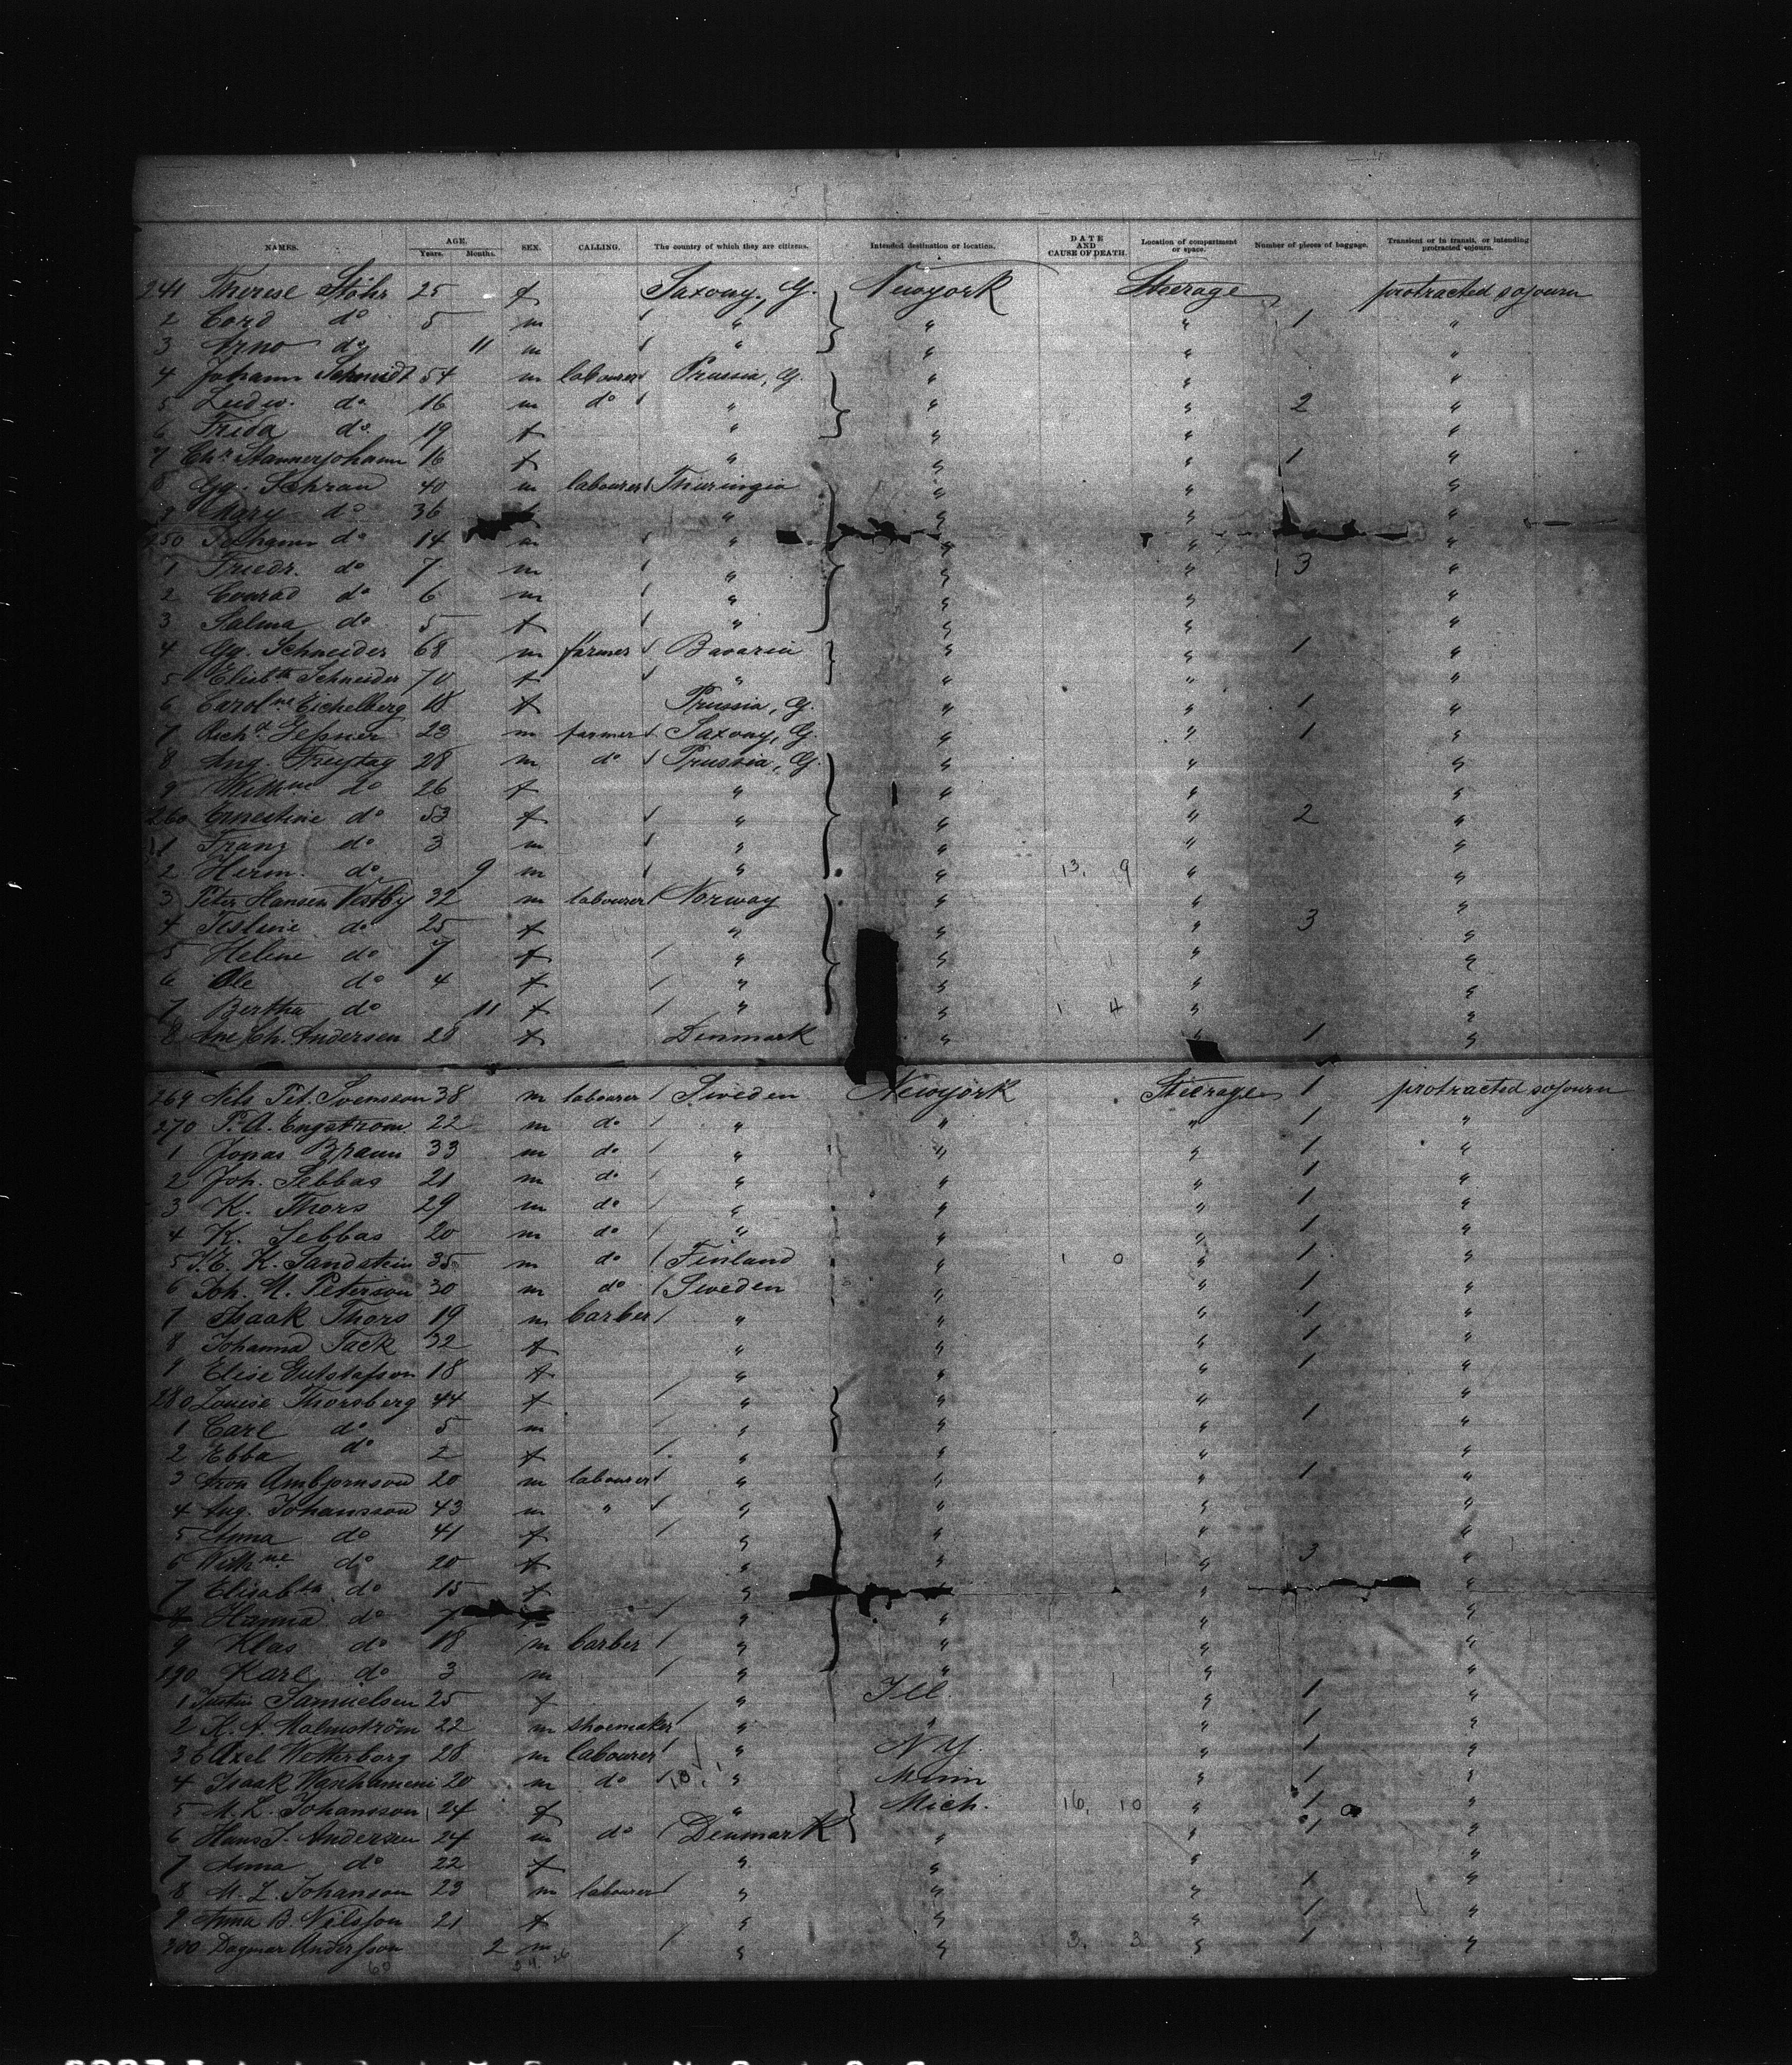 NAMES. AGE. Years. Months. SEX. CALLING. The country of which they are citizens. Intended destination or location. DATE AND CAUSE OF DEATH. Location of compartment or space. Number of pieces of baggage. Transient or in transit, or intending protracted sojourn.
241 Therese Stöhr 25 f Saxony, G. Newyork Steerage protracted sojourn
2 Cord do 5 m " " " 1 "
3 Arno do 11 m " " " "
4 Johann Schmidt 54 m labourer Prussia, G. " " "
5 Ludw. do 16 m do " " " 2 "
6 Frida do 19 f " " " "
7 Chr. Stannerjohann 16 f " " " 1 "
8 Gg. Schran 40 m labourer Thuringia " " "
9 Mary do 36 " " " "
250 Johann do 14 m " " " "
1 Friedr. do 7 m " " " 3 "
2 Conrad do 6 m " " " "
3 Salma do 5 f " " " "
4 Gg. Schneider 68 m farmer Bavaria " " 1 "
5 Elisbth Schneider 70 f " " " "
6 Carolne Eichelberg 18 f Prussia, G. " " 1 "
7 Richd 23 m farmer Saxony, G. " " 1 "
8 Aug. Freytag 28 m do Prussia, G. " " "
9 do 26 f " " " "
260 Ernestine do 53 f " " " 2 "
1 Franz do 3 m " " " "
2 Herm. do 9 m " " 13. 9 " "
3 Peter Hansen Vestby 32 m labourer Norway " " "
4 do 25 f " " " 3 "
5 Helene do 7 f " " " "
6 Ole do 4 f " " " "
7 Bertha do 11 f " " 1 4 " "
8 Ane Ch. Andersen 28 f Denmark " " 1 "
269 Nels Pet. Svensson 38 m labourer Sweden Newyork Steerage 1 protracted sojourn
270 P. A. Engstrom 22 m do " " " 1 "
1 Jonas Braun 33 m do " " " 1 "
2 Joh. Sebbas 21 m do " " " 1 "
3 K. Thors 29 m do " " " 1 "
4 K. Sebbas 20 m do " " " 1 "
5 K. Sandstein 35 m do Finland " 1 0 " 1 "
6 Joh. M. Peterson 30 m do Sweden " " 1 "
7 Isaak Thors 19 m barber " " " 1 "
8 Johanna Tack 32 f " " " 1 "
9 Elise Gutstafson 18 f " " " 1 "
280 Louise Thorsberg 44 f " " " "
1 Carl do 5 m " " " 1 "
2 Ebba do 2 f " " " "
3 Ambjornson 20 m labourer " " " 1 "
4 Aug. Johansson 43 m " " " " "
5 Anna do 41 f " " " "
6 Wilhne do 20 f " " " 3 "
7 Elisabth do 15 f " " " "
8 Hanna do 7 f " " " "
9 Klas do 18 m barber " " " "
290 Karl do 3 m " " " "
1 Samuelsen 25 f " Ill. " 1 "
2 K. A. Malmström 22 m shoemaker " " " 1 "
3 Axel Wetterborg 28 m labourer " N.Y. " 1 "
4 Isaak 20 m do " Minn " 1 "
5 M. L. Johansson 24 f " Mich. 16. 10 " 1 "
6 Hans J. Andersen 24 m do Denmark " " 1 "
7 Anna do 22 f " " " "
8 M. L. Johanson 23 m labourer " " " 1 "
9 Anna B. Nilsson 21 f " " " 1 "
300 Dagmar Andersson 2 m " " 3. 3 " 1 "